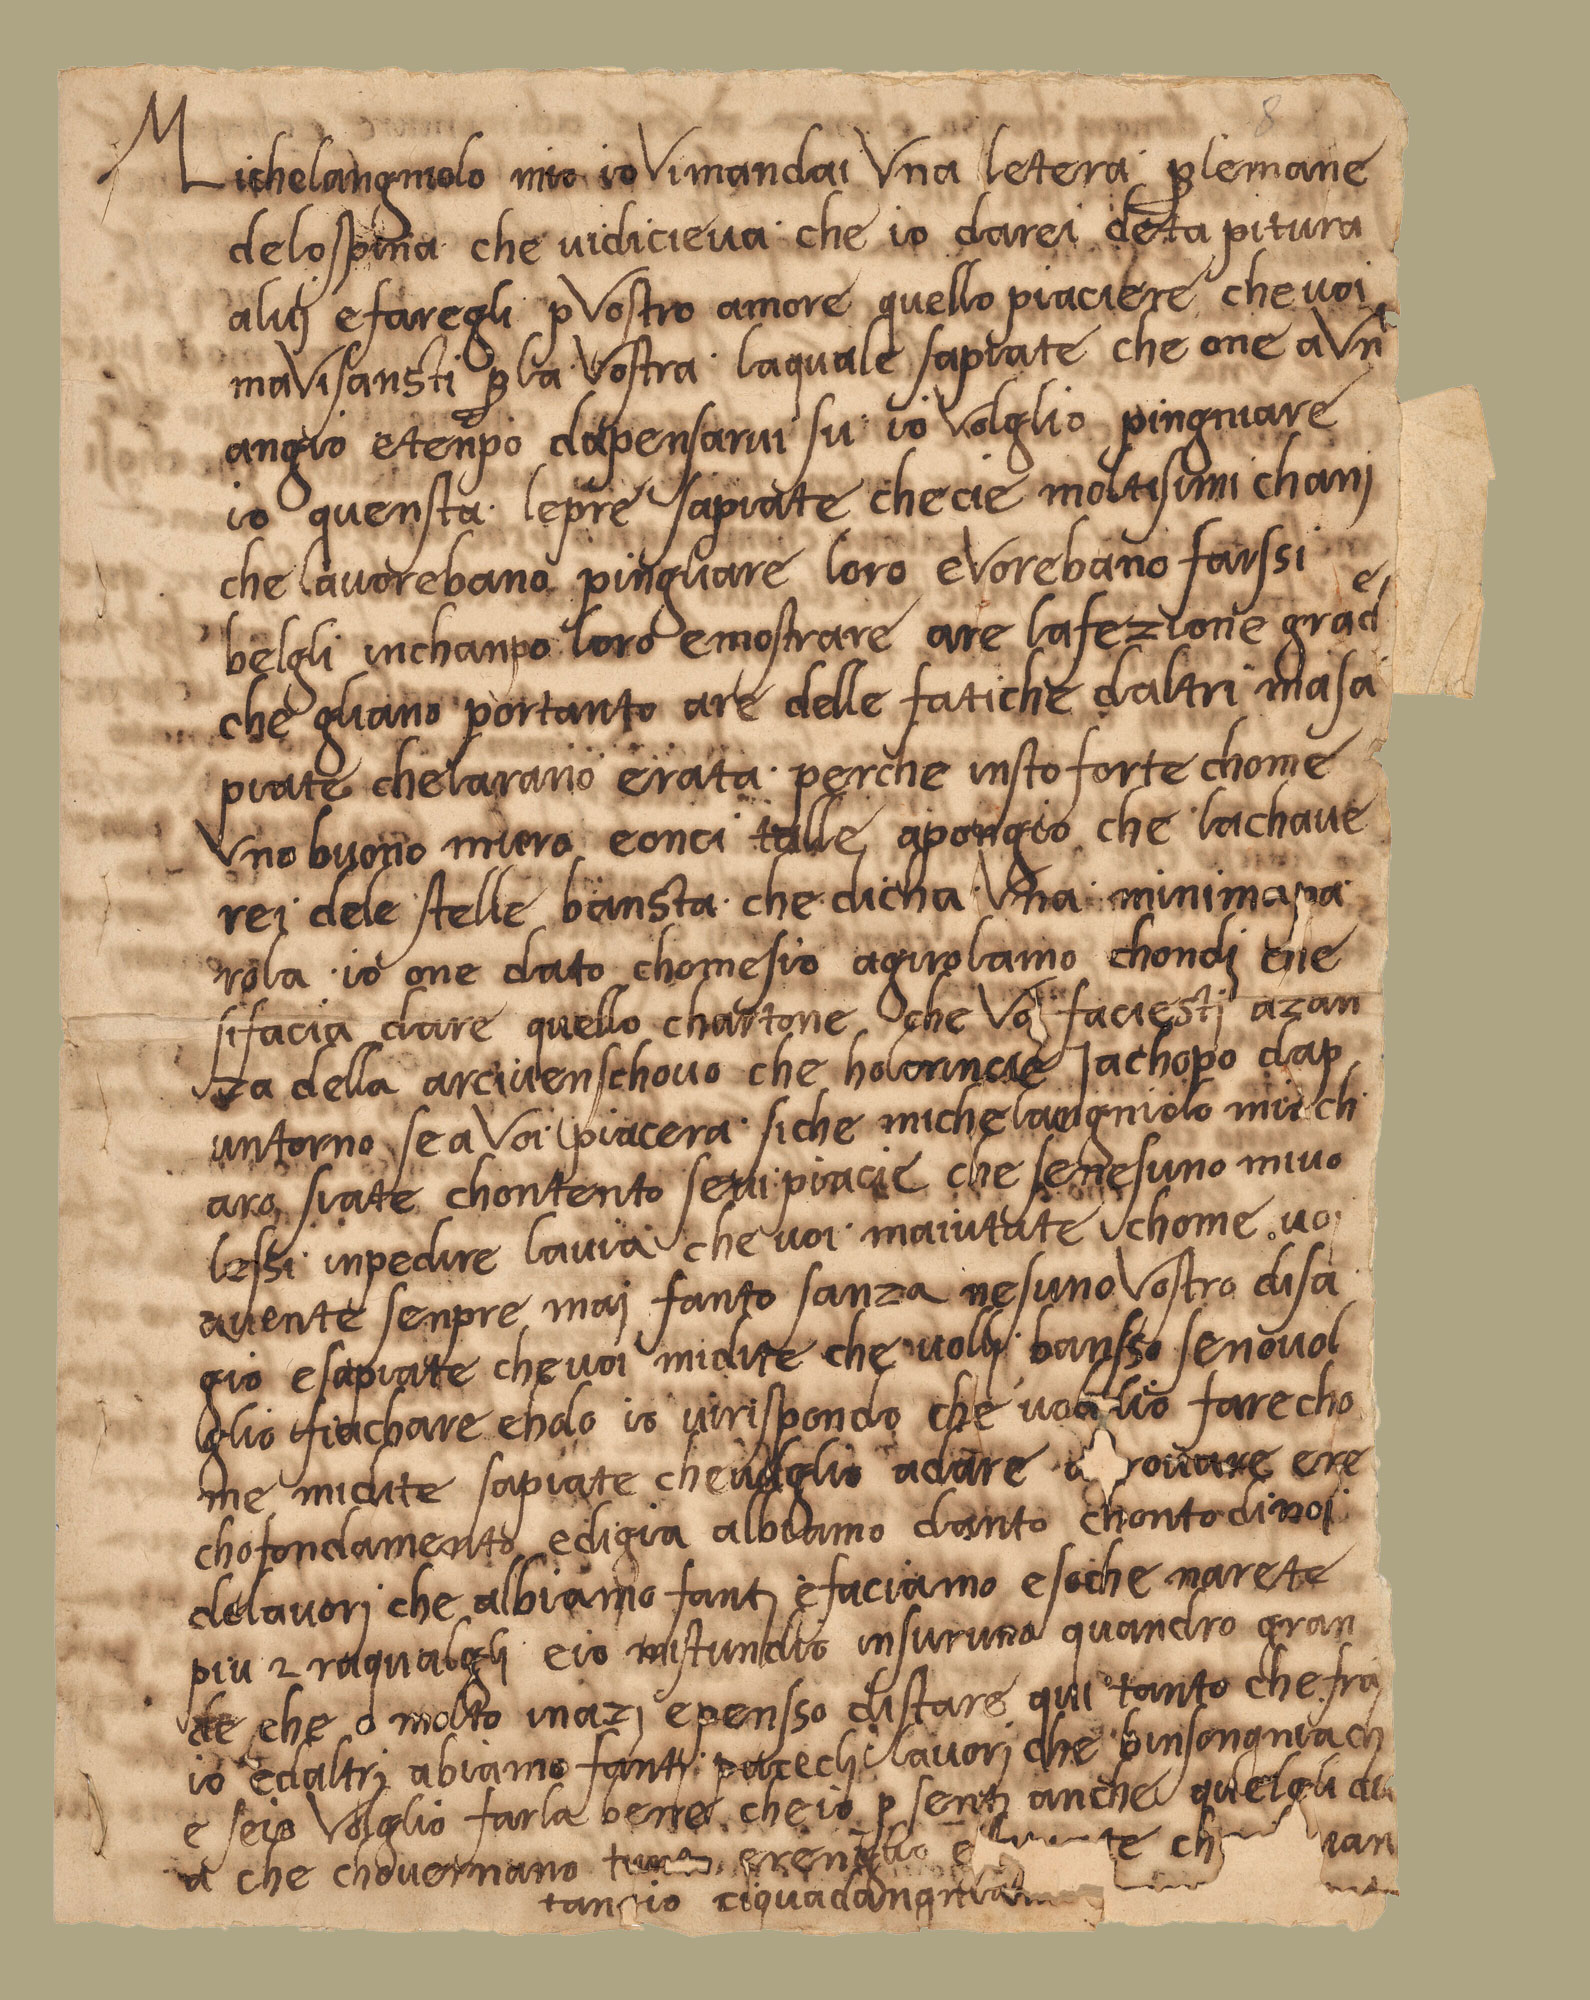 8
Michelangniolo mio io Vi mandai Vna letera p lemane
delospina che uidicieua che io darei deta pitura
alui e faregli p Vostro amore quello piaciere che uoi
maVisansti p la Vostra laquale sapiate che one a Vn
angio etenpo dapensarui su io Volglio pingniare
io quensta lepre sapiate checie moltisimi chanj
che lauorebano pingliare loro eVorebano farssi
belgli inchanpo loro emostrare are lafezione grad e
che gliano portanto are delle fatiche daltri masa
piate chelarano erata perche insto forte chome
Vno buono muro eonci talle apongio che lachaue
rei dele stelle bansta che dicha Vna minima pa
rola io one dato chomesio agirolamo chondj che
sifacia dare quello chartone che Voi faciestj azan
za della arciuenschouo che holorincie Jachopo dap
untorno se a Voi piacera siche michelangniolo mio ch
aro siate chontento seui piacie che senesuno miuo
lessi inpedire lauia che uoi maiutate chome uoi
auente senpre maj fanto sanza nesuno Vostro disa
gio esapiate cheuoi midite che uollj bansso senouol
glio fiachare endo io uirispondo che uoglio fare cho
me midite sapiate cheuolglio adare rouare ere
chofondamento edigia albiamo danto chonto dinoj
delauorj che albiamo fantj e faciamo esoche narete
piu 2 raqualglj eio mistundio insuruno quandro gran
de che o molto inazj epensso distare qui tanto che fra
io edaltrj abiamo fantj parechj lauorj che binsongnia ch
e seio Volglio farla bene che io p sentj anche quelgli di
a che chouernano ereniglio
tangio ciquadangnia